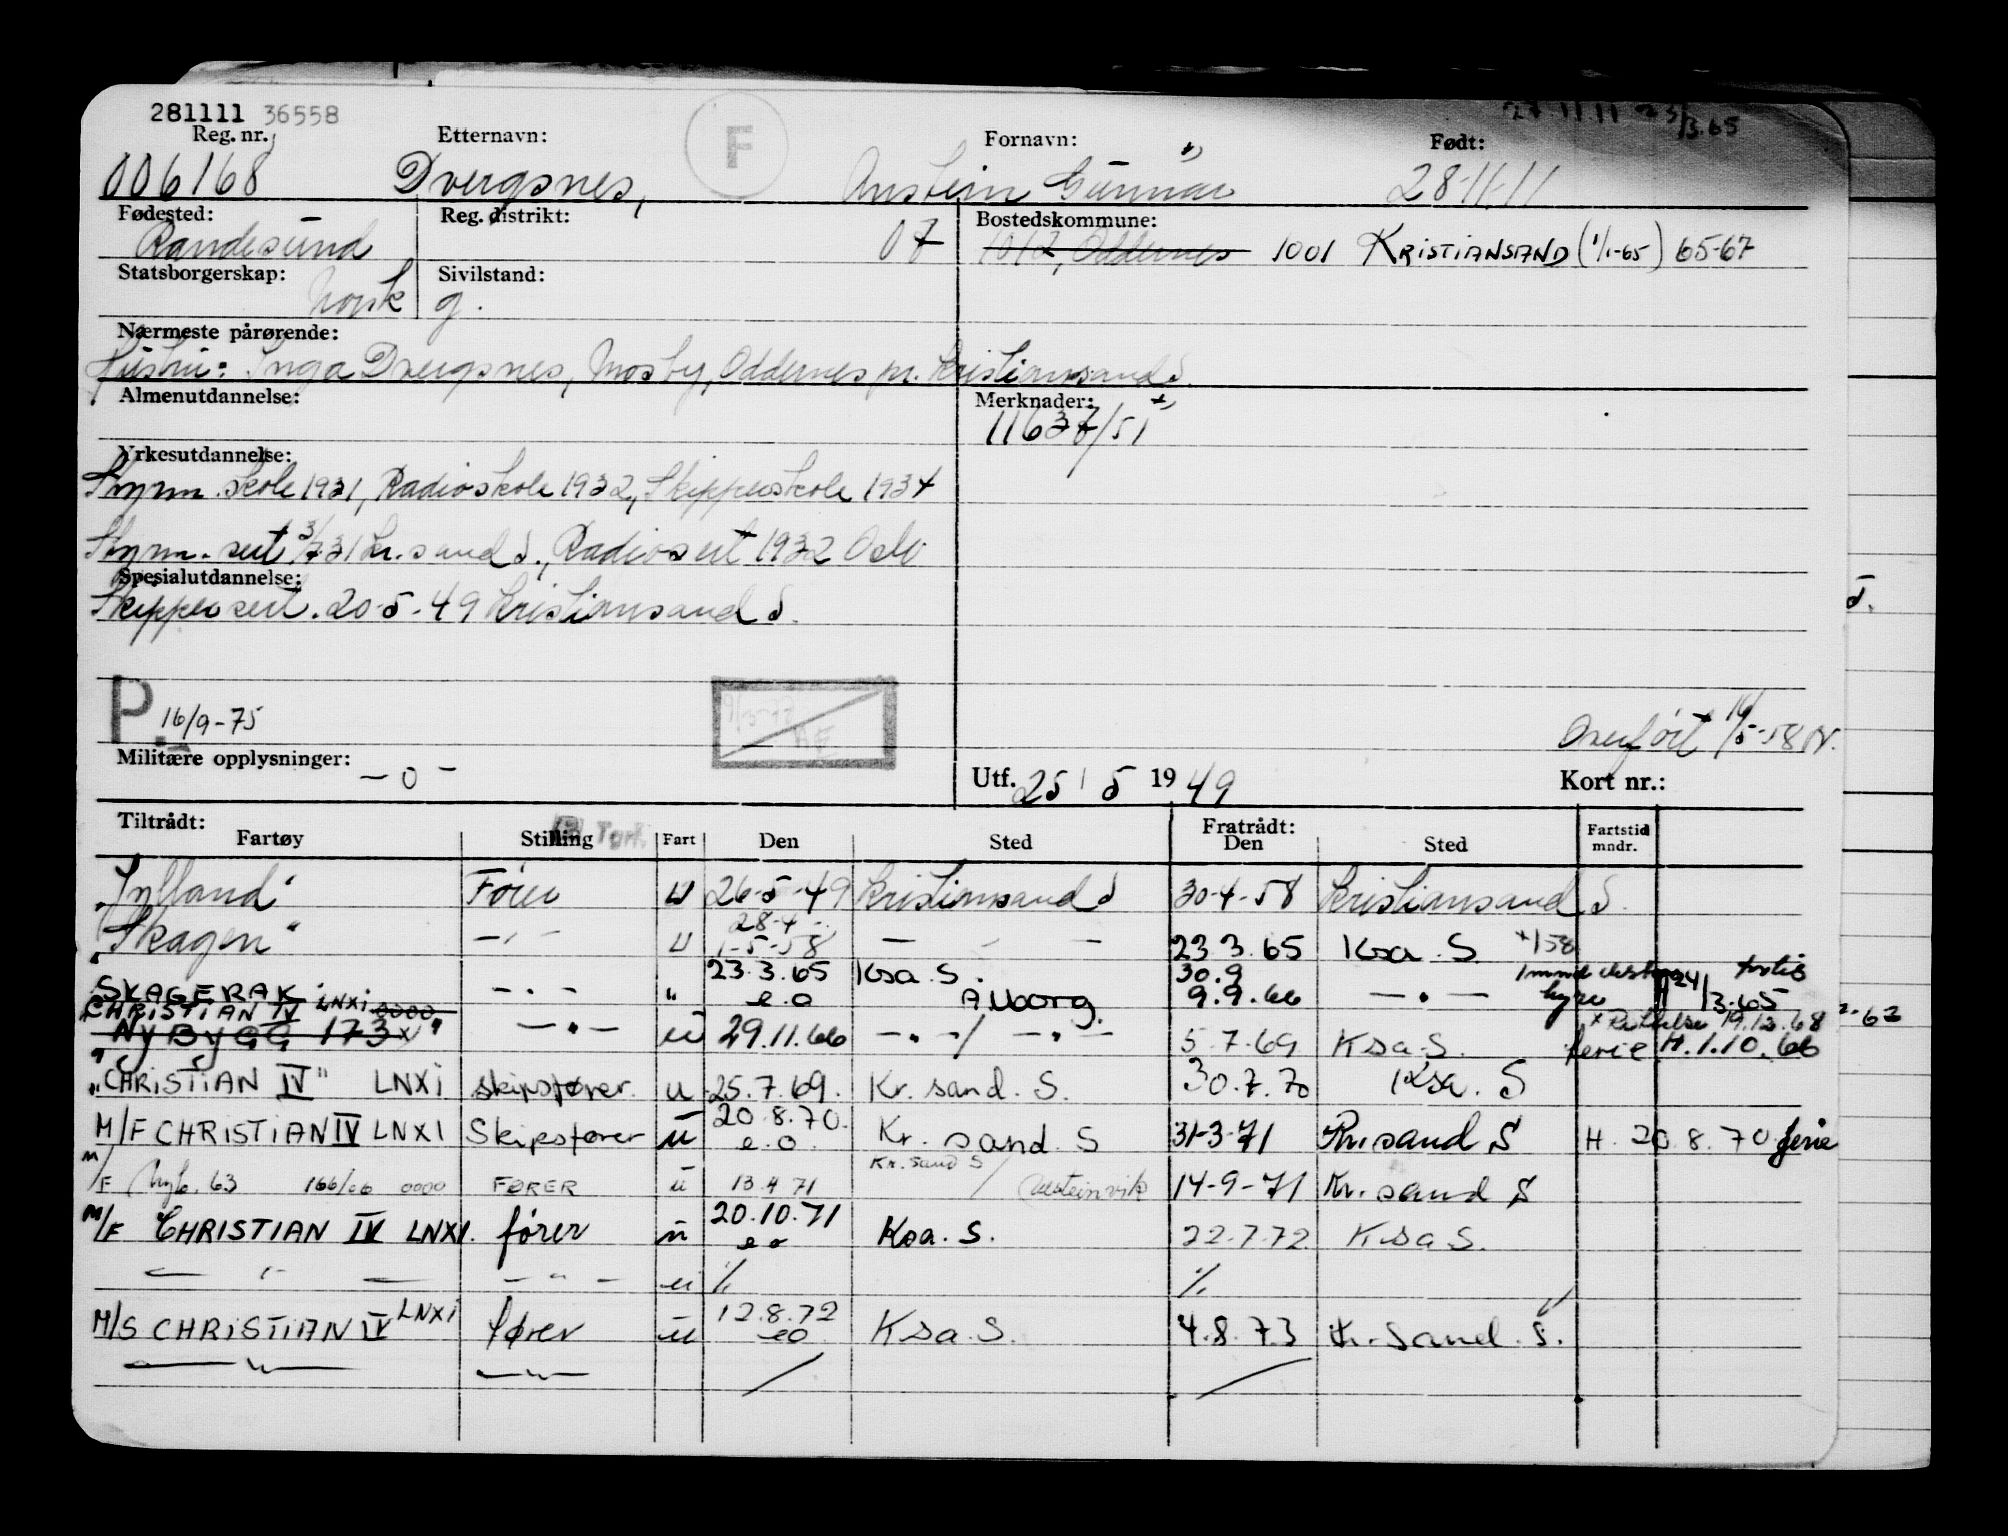 281111 36558
Reg. nr. Etternavn: F Fornavn: Født:
006168 Dvergsnes, Anstein Gunnar 28-11-11
Fødested: Reg. distrikt: Bostedskommune:
Randesund 07 1012, Oddernes 1001 KRISTIANSAND (1/1-65) 65-67
Statsborgerskap: Sivilstand:
Norsk g.
Nærmeste pårørende:
Hustru: Inga Dvergsnes, Mosby, Oddernes pr. Kristiansand S.
Almenutdannelse: Merknader:
Yrkesutdannelse:
Styrm. skole 1931, Radioskole 1932, Skipperskole 1934
Styrm. sert. 31 Kr.sand S., Radiosert 1932 Oslo
Spesialutdannelse:
Skippersert. 20-5-49 Kristiansand S.
P. 16/9-75
Overført 16/5-58
Militære opplysninger: -0- Utf. 25/5 1949 Kort nr.:
Tiltrådt: Fratrådt:
Fartøy Stilling Fart Den Sted Den Sted Fartstid mndr.
"Jylland" Fører U 26-5-49 Kristiansand S 30-4-58 Kristiansand S.
28-4-
"Skagen" -"- U 1-5-58 - " - 23.3.65 Ksa. S
23.3.65 Ksa. S. 30.9
"SKAGERAK" -"- " e.o Alborg. 9.9.66 -"- hyre 3.65
CHRISTIAN IV LNXI 0000
"NYBYGG 173" -"- u 29.11.66 -"-/-"- 5.7.69 Ksa S. ferie H.1.10.66
19.12.68
"CHRISTIAN IV" LNXI skipsfører. u 25.7.69. Kr. sand. S. 30.7.70 Ksa. S
20.8.70.
M/F CHRISTIAN IV LNXI Skipsfører u e.o. Kr. sand. S 31-3-71 Kr.sand S H. 20.8.70 ferie
Kr. sand S/
M/F Nyb. 63 166/66 0000 FØRER u 13 4 71 Ulsteinvik 14-9-71 Kr. sand S
20.10.71
M/F CHRISTIAN IV LNXI. fører u eo Ksa. S. 22.7.72 Ksa S.
- " - - " - u % %
12.8.72
M/S CHRISTIAN IV LNXI fører u eo Ksa S. 4.8.73 Kr. Sand. S.
- " - - " - / /